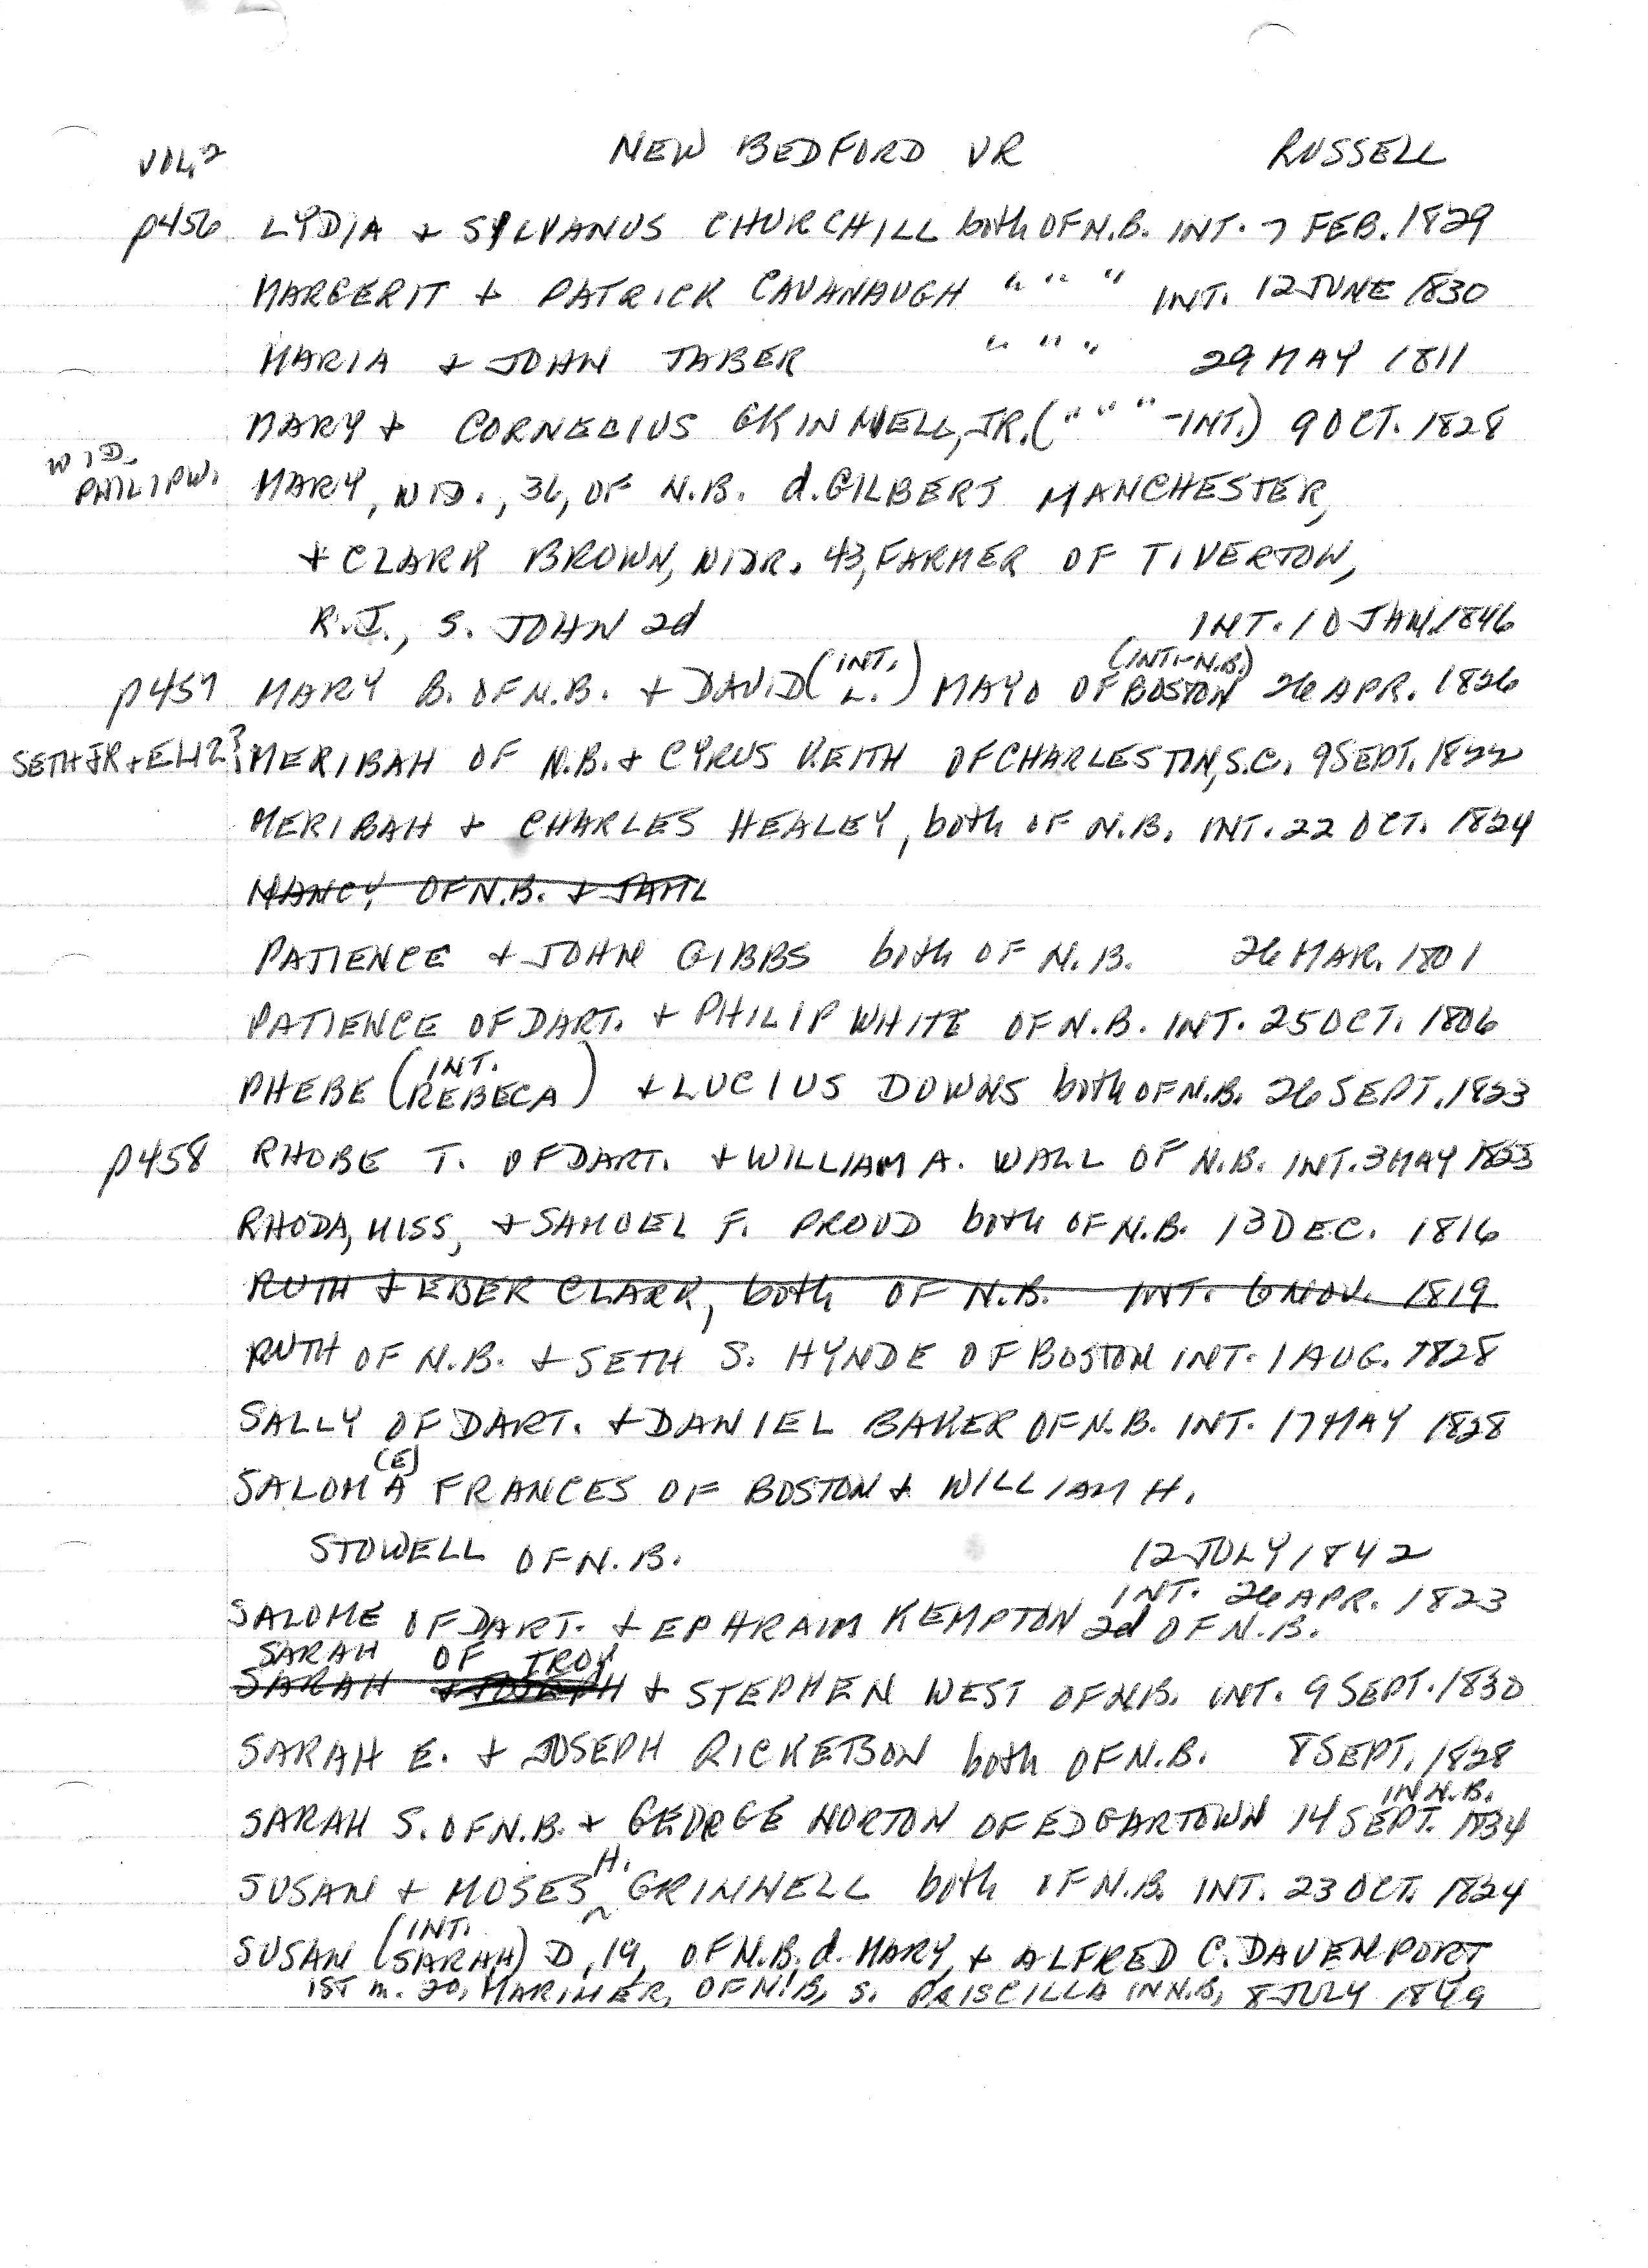 VOL. 2 NEW BEDFORD VR RUSSELL
p456 LYDIA + SYLVANUS CHURCHILL both OF N.B. INT. 7 FEB. 1829
MARGERIT + PATRICK CAVANAUGH " " " INT. 12 JUNE 1830
MARIA + JOHN TABER " " " 29 MAY 1811
MARY + CORNELIUS GRINNELL, JR. (" " " -INT.) 9 OCT. 1828
WID. PHILIP W. MARY, WID., 36, OF N.B. d. GILBERT MANCHESTER,
+ CLARK BROWN, WIDR. 43, FARMER OF TIVERTON,
R.I., S. JOHN 2d INT. 10 JAN. 1846
p457 MARY B. OF N.B. + DAVID (INT. L.) MAYO OF BOSTON (INT.-N.B.) 26 APR. 1826
SETH JR + ELIZ? MERIBAH OF N.B. + CYRUS KEITH OF CHARLESTON, S.C. 9 SEPT. 1822
MERIBAH + CHARLES HEALEY, both OF N.B. INT. 22 OCT. 1824
NANCY OF N.B. + JAM
PATIENCE + JOHN GIBBS both OF N.B. 26 MAR. 1801
PATIENCE OF DART. + PHILIP WHITE OF N.B. INT. 25 OCT. 1806
PHEBE (INT. REBECA) + LUCIUS DOWNS both OF N.B. 26 SEPT. 1823
p458 RHOBE T. OF DART. + WILLIAM A. WALL OF N.B. INT. 3 MAY
RHODA, MISS, + SAMUEL F. PROUD both OF N.B. 13 DEC. 1816
RUTH + EBER CLARK, both OF N.B. INT. 6 NOV. 1819
RUTH OF N.B. + SETH S. HYNDE OF BOSTON INT. 1 AUG. 1828
SALLY OF DART. + DANIEL BAKER OF N.B. INT. 17 MAY 1828
SALOMA (E) FRANCES OF BOSTON + WILLIAM H.
STOWELL OF N.B. 12 JULY 1842
SALOME OF DART. + EPHRAIM KEMPTON 2d OF N.B. INT. 26 APR. 1823
SARAH OF TROY
SARAH + JOSEPH + STEPHEN WEST OF N.B. INT. 9 SEPT. 1830
SARAH E. + JOSEPH RICKETSON both OF N.B. 8 SEPT. 1828
SARAH S. OF N.B. + GEORGE NORTON OF EDGARTOWN 14 SEPT. 1834 IN N.B.
SUSAN + MOSES H. GRINNELL both OF N.B. INT. 23 OCT. 1824
SUSAN (INT. SARAH) D, 19, OF N.B, d. MARY, + ALFRED C. DAVENPORT,
1ST m. 20, MARINER, OF N.B, S. PRISCILLA IN N.B, 8 JULY 1849